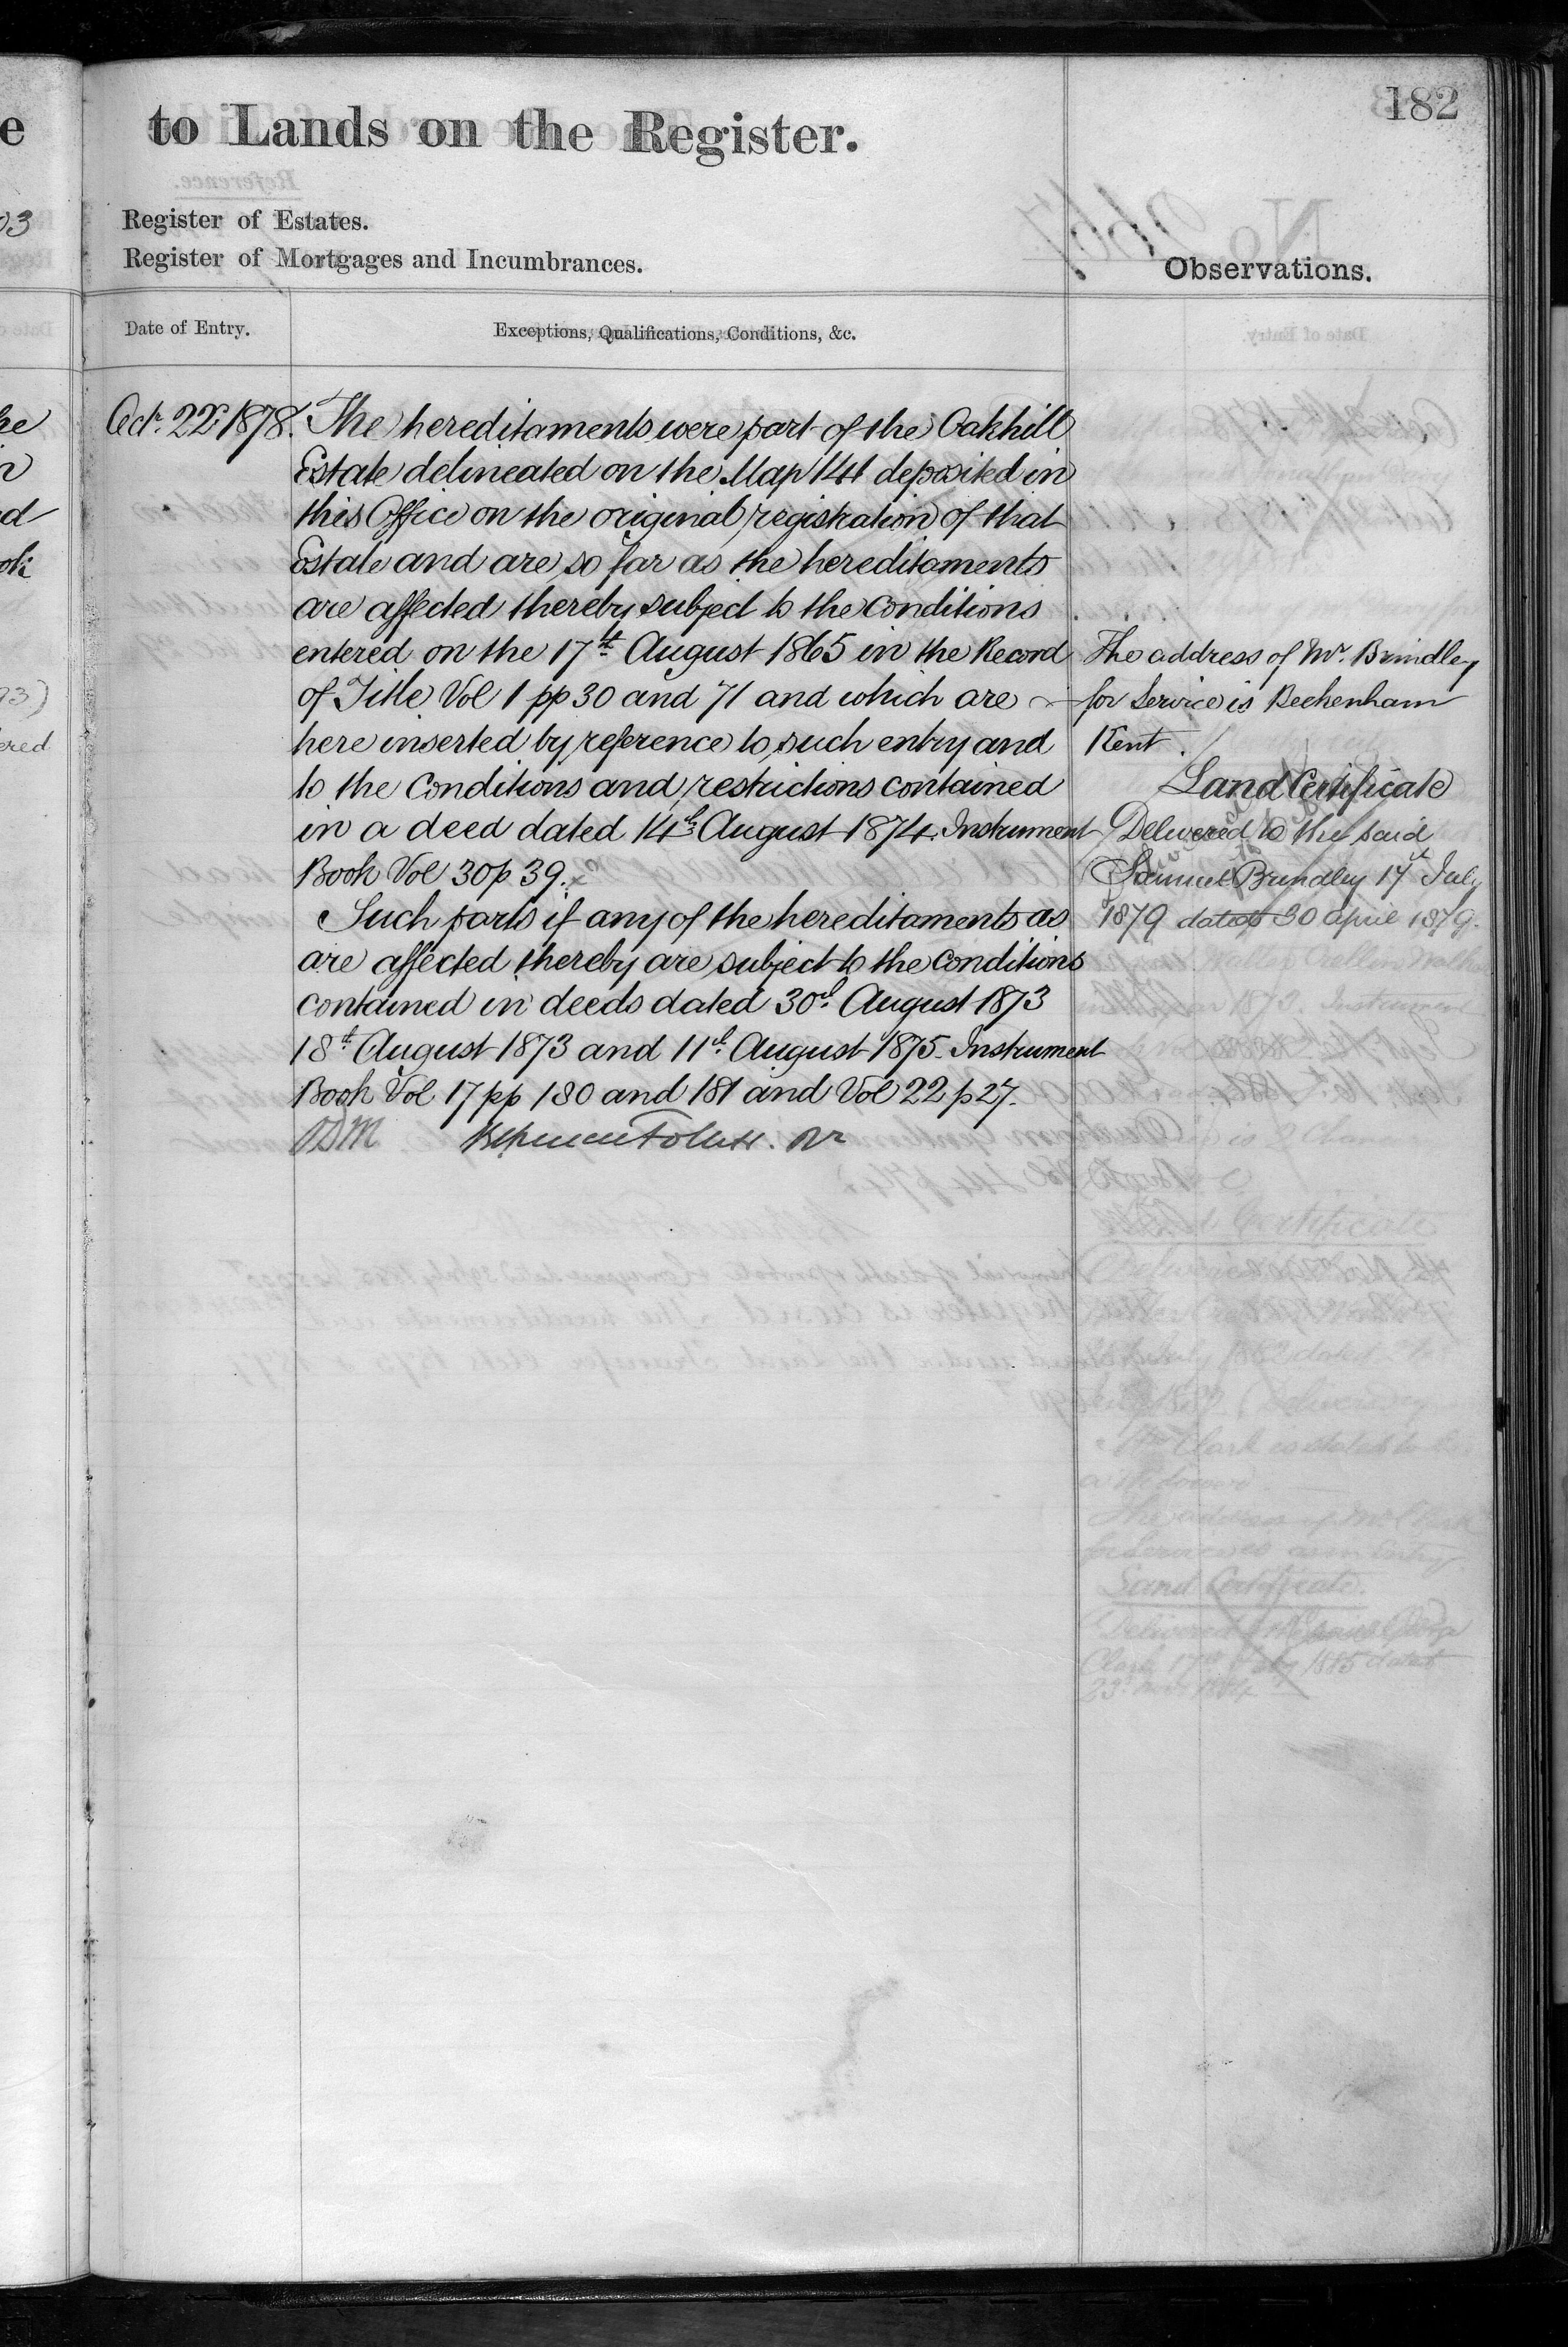 182
to Lands on the Register.
Register of Estates.
Register of Mortgages and Incumbrances.
Observations.
Date of Entry.
Exceptions, Qualifications, Conditions, &c.
Oct. 22. 1878. The hereditaments were part of the Oakhill
Estate delineated on the Map 141 deposited in
this Office on the original registration of that
Estate and are so far as the hereditaments
are affected thereby subject to the conditions
entered on the 17th August 1865 in the Record
of Title Vol 1 pp 30 and 71 and which are
here inserted by reference to such entry and
to the Conditions and restrictions contained
in a deed dated 14th August 1874. Instrument
Book Vol 30 p 39.
Such parts if any of the hereditaments as
are affected thereby are subject to the conditions
contained in deeds dated 30th August 1873
18th August 1873 and 11th August 1875. Instrument
Book Vol 17 pp 180 and 181 and Vol 22 p 27.
The address of Mr. Brindley
for Service is Beckenham
Kent.
Land Certificate
Delivered to the said
Samuel Brindley 17th July
1879 dated 30 April 1879.